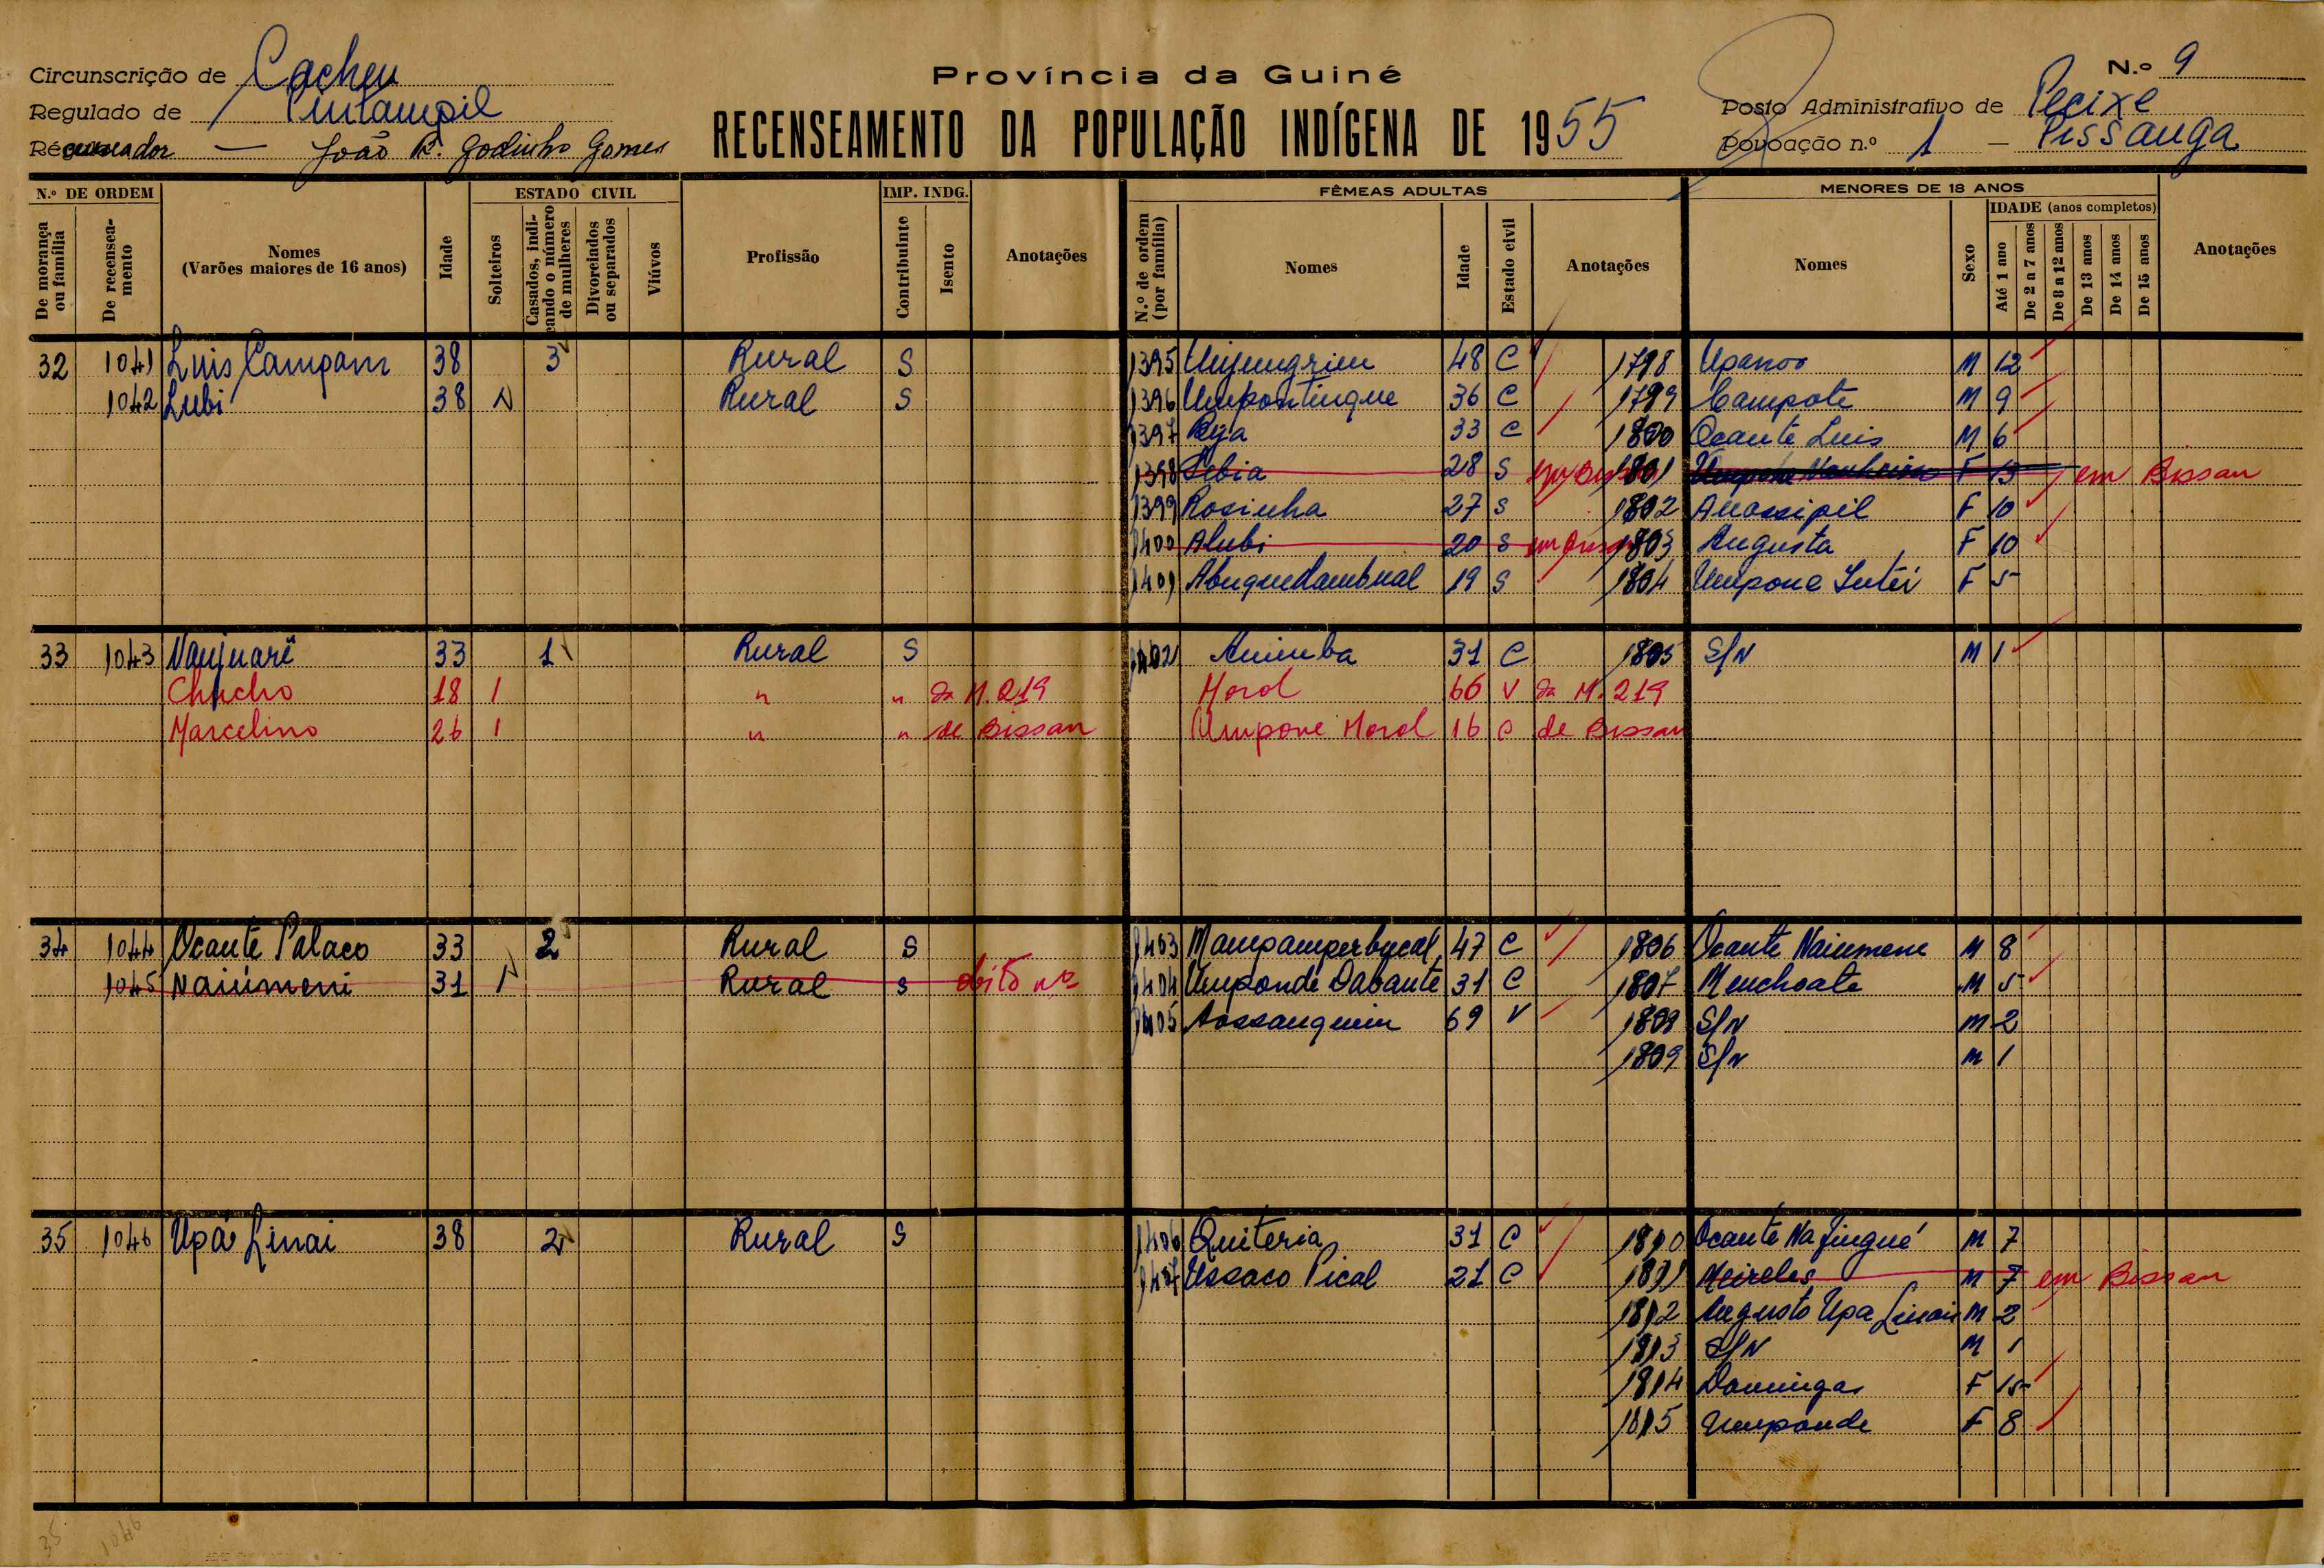 Província da Guiné
N.º 9
Circunscrição de Cacheu
Regulado de Pintampil
Recenseador — João R. Godinho Gomes
RECENSEAMENTO DA POPULAÇÃO INDÍGENA DE 1955
Posto Administrativo de Pecixe
Povoação n.º 1 – Pissanga
N.º DE ORDEM
De morança ou família
De recenseamento
Nomes
(Varões maiores de 16 anos)
Idade
ESTADO CIVIL
Solteiros
Casados, indicando o número de mulheres
Divorciados ou separados
Viúvos
Profissão
IMP. INDG.
Contribuinte
Isento
Anotações
FÊMEAS ADULTAS
N.º de ordem (por família)
Nomes
Idade
Estado civil
Anotações
MENORES DE 18 ANOS
Nomes
Sexo
IDADE (anos completos)
Até 1 ano
De 2 a 7 anos
De 8 a 12 anos
De 13 anos
De 14 anos
De 15 anos
Anotações
32 1041 Luis Campam 38 3 Rural S 1395 48 C 1798 Upanoo M 12
1042 Lubi 38 Rural S 1396 Umpontingue 36 C 1799 Campote M 9
1397 33 C 1800 Ocante Luis M 6
1398 Sebia 28 S 1801 F 13 em Bissau
1399 Rosinha 27 S 1802 Anassipil F 10
1400 Alubi 20 S 1803 Augusta F 10
1401 19 S 1804 Umpone Intei F 5
33 1043 Naujuarê 33 1 Rural S 1402 Animba 31 C 1805 S/N M 1
Chucho 18 1 " " da M. 219 Horol 66 V da M. 219
Marcelino 26 1 " " de Bissau Umpone Horol 16 de Bissau
34 1044 Ocante Palaco 33 2 Rural S 1403 47 C 1806 Ocante Naiumene M 8
1045 Naiúmeni 31 1 Rural S 1404 Umponde Dabante 31 C 1807 Menchoate M 5
1405 Aossanguim 69 V 1808 S/N M 2
1809 S/N M 1
35 1046 Upá Linai 38 2 Rural S 1406 Quiteria 31 C 1810 Ocante Na Jingué M 7
1407 Ussaco Pical 21 C 1811 Meireles M 7 em Bissau
1812 Augusto Upa Linai M 2
1813 S/N M 1
1814 Domingas F 15
1815 Umponde F 8
35 1046